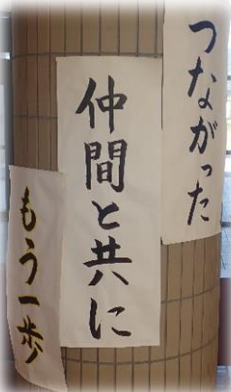 つながった
仲間と共に
もう一歩